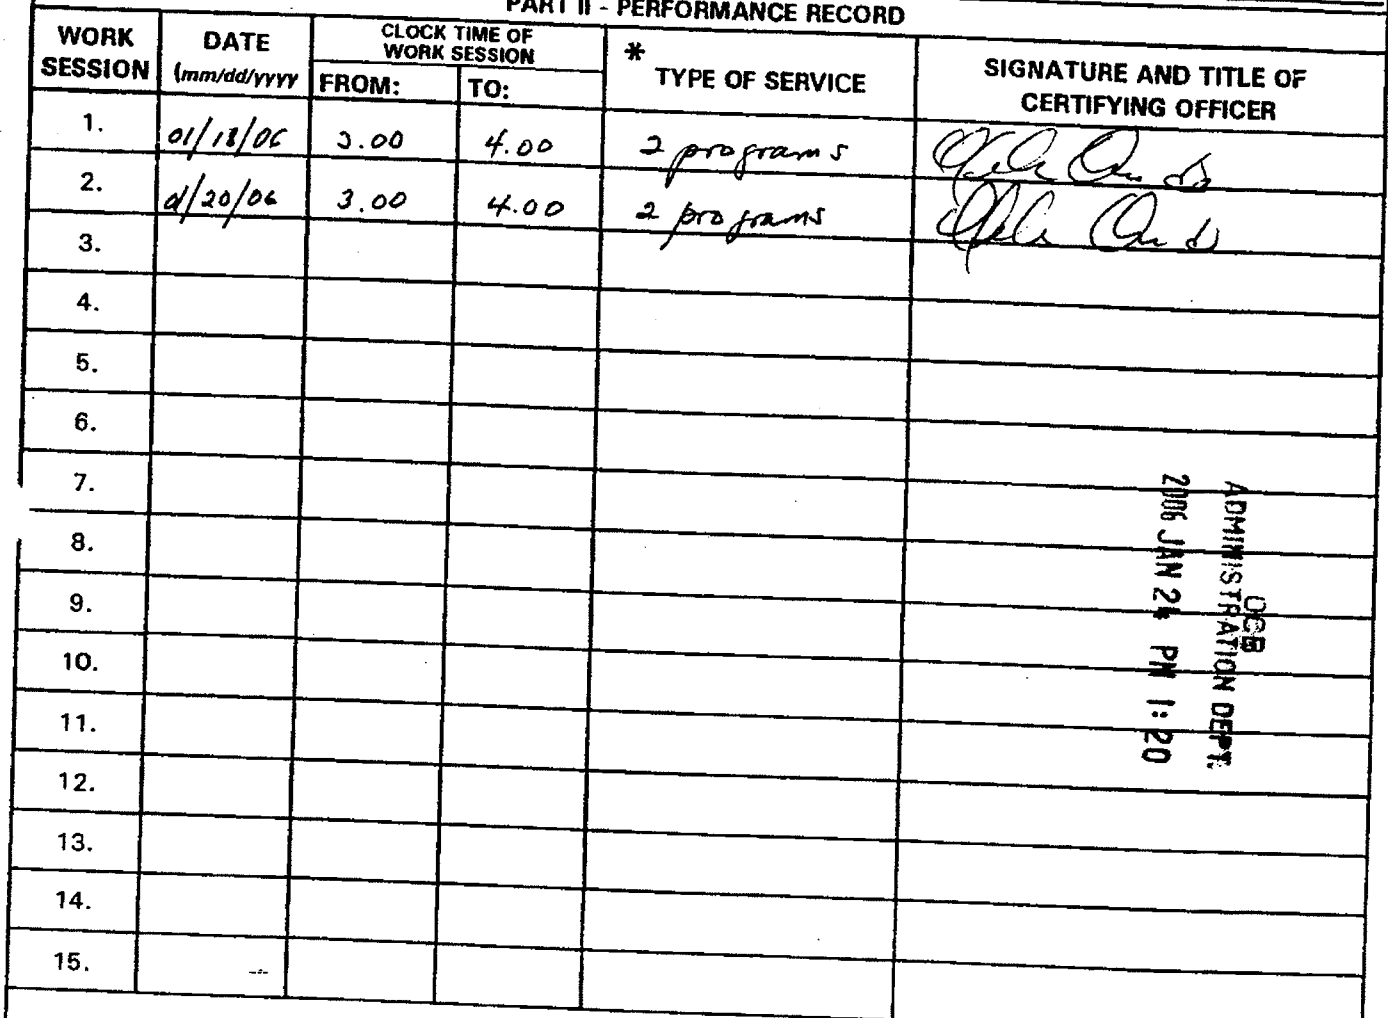 PART II - PERFORMANCE RECORD
WORK SESSION
DATE (mm/dd/yyyy
CLOCK TIME OF WORK SESSION
FROM:
TO:
* TYPE OF SERVICE
SIGNATURE AND TITLE OF CERTIFYING OFFICER
1. 01/18/06 3.00 4.00 2 programs
2. 01/20/06 3.00 4.00 2 programs
3.
4.
5.
6.
7.
8.
9.
10.
11.
12.
13.
14.
15.
OCB
ADMINISTRATION DEPT.
2006 JAN 24 PM 1:20